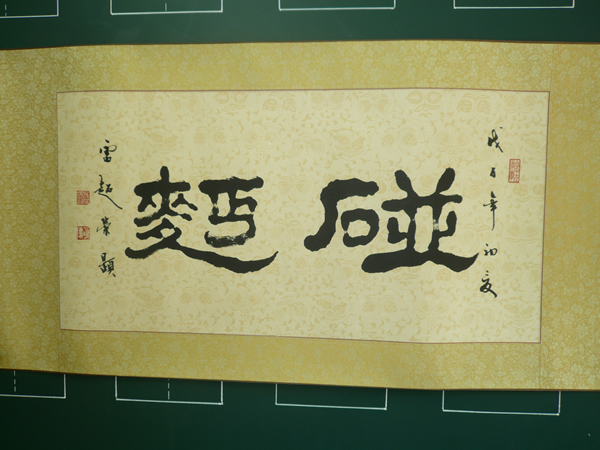 戊子年初夏
碰麪
雷超榮題